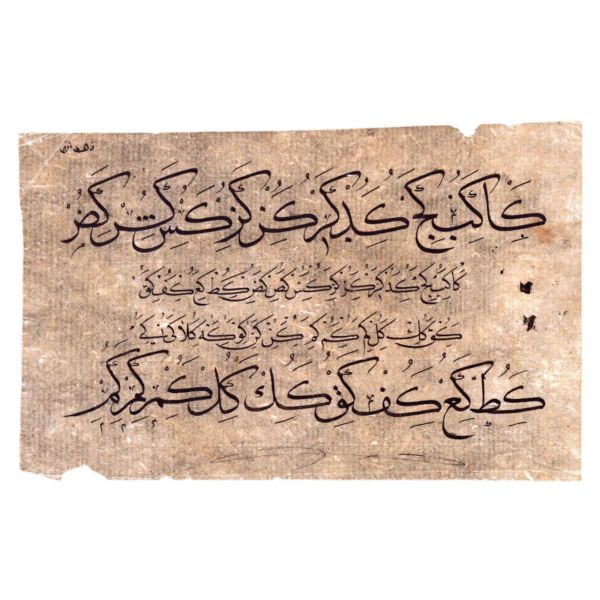 كا كب كج كد كر كر كز كس كش كص
كا كب كج كد كر كر كز كس كص كط كع كف كق
كق كك كل كم كم كم كن كن كو كه كلا كى كے
كط كع كف كق كك كل كم كم كم